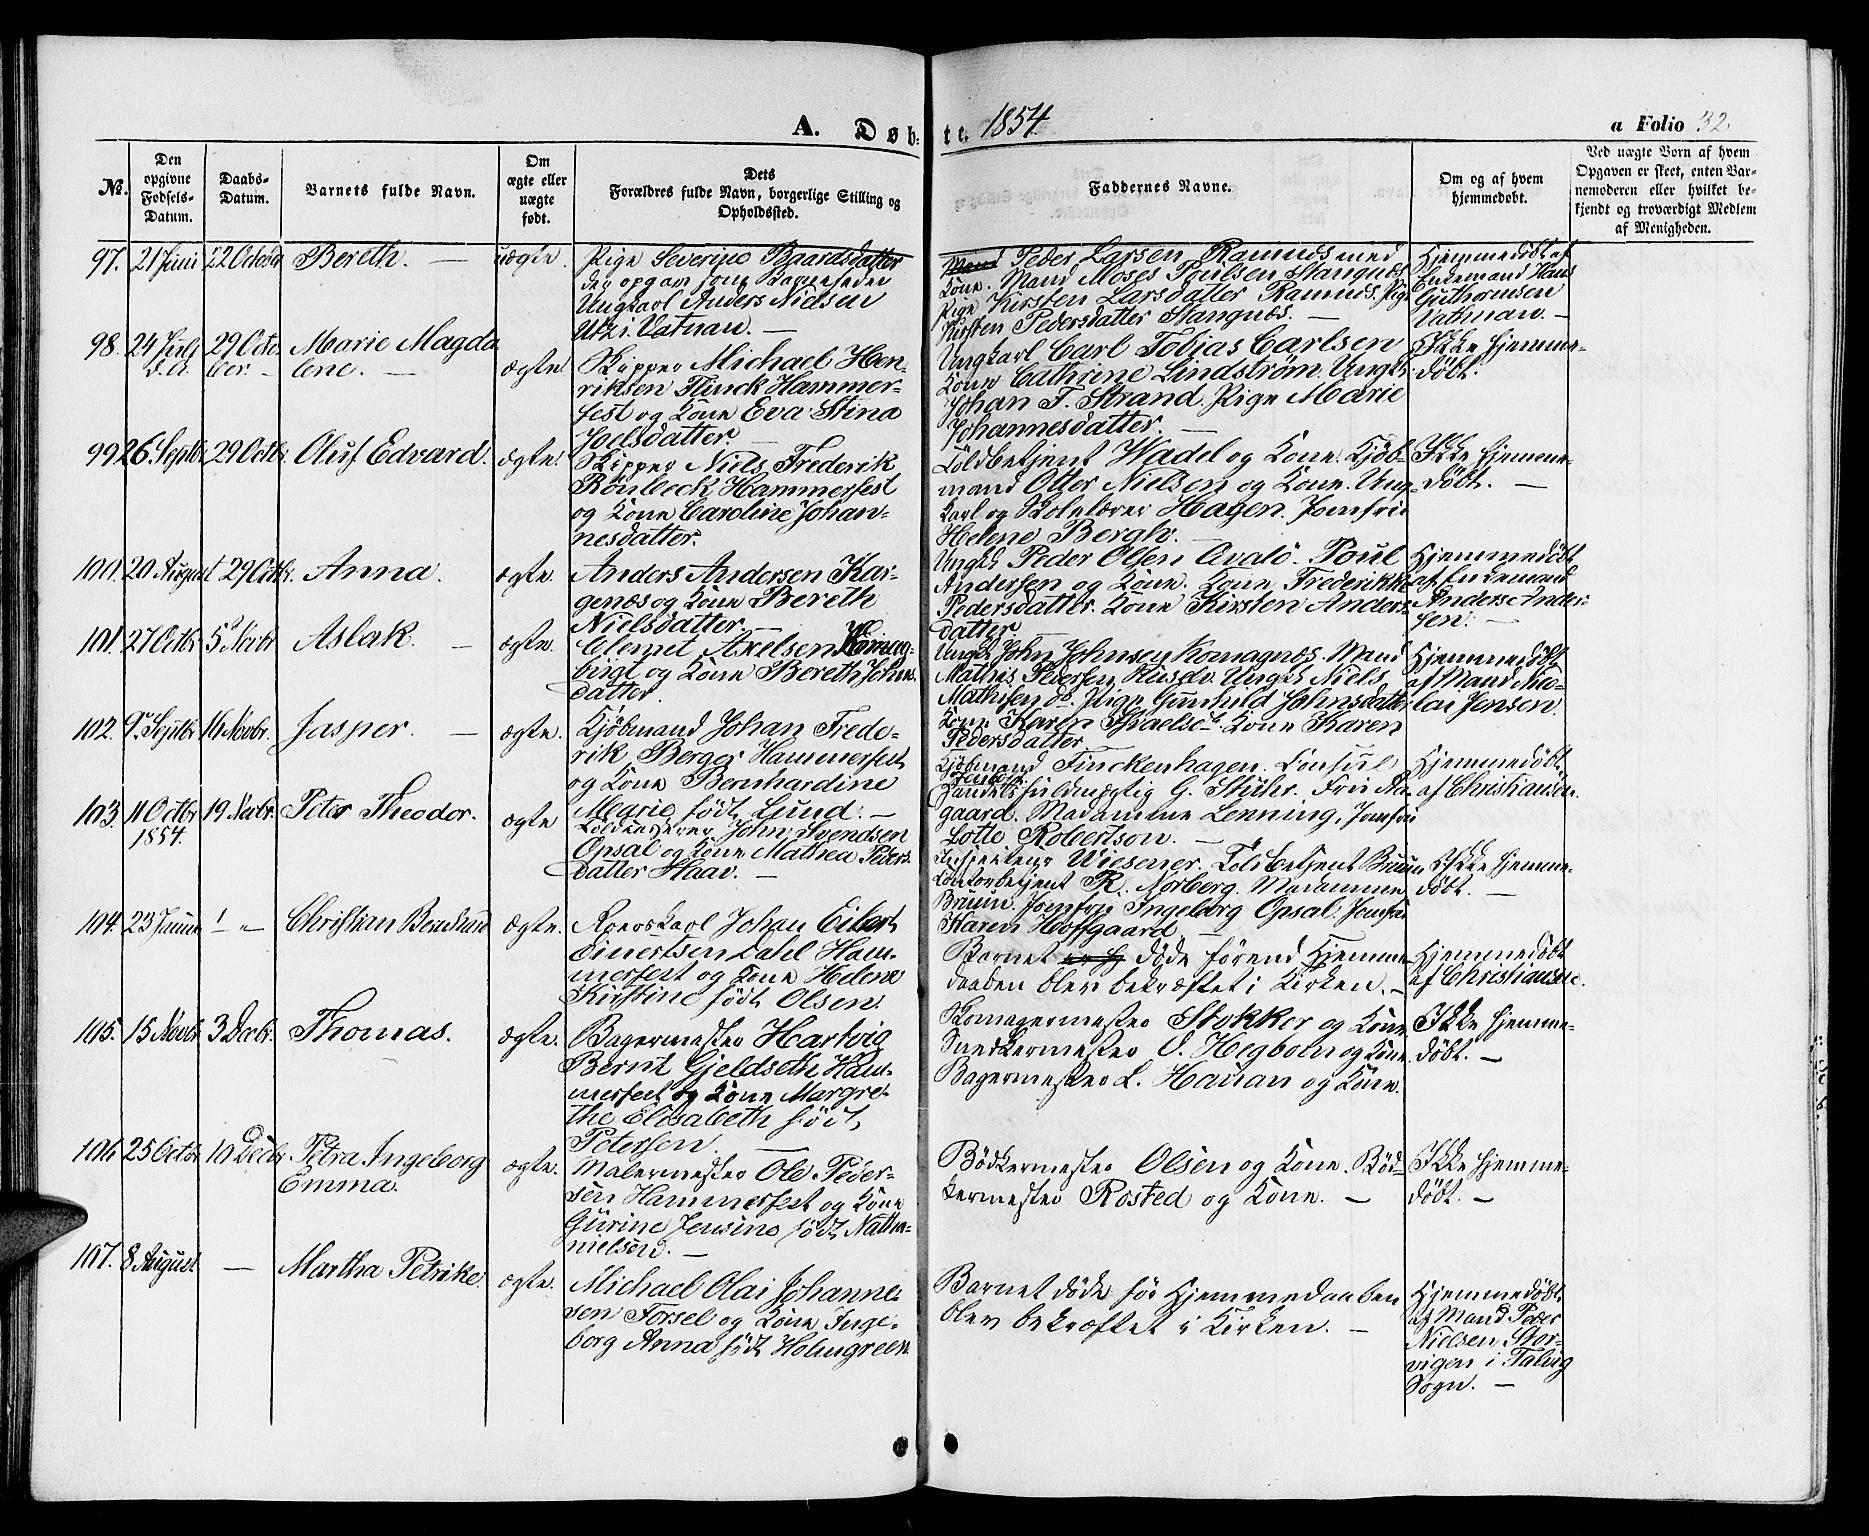 A. Døb-
te. 1854.
a Folio 32
No.
Den opgivne Fødsels-Datum.
Daabs-Datum.
Barnets fulde Navn.
Om ægte eller uægte født.
Dets
Forældres fulde Navn, borgerlige Stilling og
Opholdssted.
Faddernes Navne.
Om og af hvem
hjemmedøbt.
Ved uægte Børn af hvem
Opgaven er skeet, enten Bar-
nemoderen eller hvilket be-
kjendt og troværdigt Medlem
af Menigheden.
97. 21 Juni 22 October Bereth. — uægte. Pige Severine Baardsdatter
der opgav som Barnefader
Ungkarl Anders Nielsen
Utzi. Vatnan. —
Peder Larsen Ramnæs med
Kone. Mand Moses Poulsen Stangnæs
Pige Kirsten Larsdatter Ramnæs. Pige
Kirsten Pedersdatter Stangnæs. —
Hjemmedøbt af
Enkemand Hans
Guthormsen
Vatnan. —
98. 24 Juli 29 Octo-
ber. — Marie Magda
lene. — ægte. Skipper Michael Hen-
riksen Finck Hammer-
fest og Kone Eva Stina
Joelsdatter. —
Ungkarl Carl Tobias Carlsen
Kone Cathrine Lindstrøm. Ungk.
Johan T. Strand. Pige Marie
Johannesdatter. —
Ikke hjemme-
døbt.
99. 26. Septbr 29 Octbr. Oluf Edvard. ægte. Skipper Niels Frederik
Rönbeck Hammerfest
og Kone Caroline Johan-
nesdatter.
Toldbetjent Wadel og Kone. Kjöb-
mand Otter Nielsen og Kone. Ung-
karl og Skolelærer Hagen. Jomfru
Helene Bergh. —
Ikke hjemme-
døbt. —
100. 20 August 29 Octbr. Anna. ægte. Anders Andersen Kar-
genæs og Kone Bereth
Nielsdatter. —
Ungk. Peder Olsen Avalö. Poul
Andersen og Kone. Kone Frederikke
Pedersdatter. Kone Kirsten Anders-
datter. —
Hjemmedöbt
af Enkemand
Anders Ander-
sen. —
101. 27 Octbr 5 Novbr Aslak. — ægte. Clemet Axelsen Komag-
vigt og Kone Bereth Johns
datter.
Ungk. John Johnsen Komagnæs. Mand
Mathis Pedersen Kuselv. Ungk. Niels
Mathisen do. Pige Gunhild Johnsdatter
Kone Karen Kone Karen
Pedersdatter.
Hjemmedöbt
af Mand
Jensen.
102. 9 Septbr 16 Novbr. Jasper. — ægte. Kjöbmand Johan Frede-
rik Berger Hammerfest
og Kone Bernhardine
Marie födt Lund. —
Kjöbmand Finckenhagen. Consul
Handelsfuldmægtig G. Stuhr. Fru
gaard. Madamme Lenning, Jomfru
Lotte Robertson. —
Hjemmedöbt
af Christiansen.
103. 11 Octbr
1854. 19 Novbr. Peter Theodor. ægte Toldkasserer John Svendsen
Opsal og Kone Mathea Peders-
datter Haav. —
Wiesener. Toldbetjent Bruun
Contorbetjent R. Norberg. Madammen
Bruun. Jomfru Ingeborg Opsal. Jomfru
Karen Hoffgaard. —
Ikke hjemme-
døbt. —
104. 23 Januar ! — „ — Christian Bernhard ægte. Roerskarl Johan Eilert
Einertsen Dahl Ham-
merfest og Kone Helene
Kirstine født Olsen.
Barnet döde förend Hjemme-
daaben blev bekræftet i Kirken. —
Hjemmedöbt
af Christiansen.
105. 15 Novbr 3 Decbr. Thomas. ægte. Bagermester Hartvig
Bernt Gjeldseth Ham-
merfest og Kone Margre-
the Elisabeth født
Petersen. —
Skomagermester Stokker og Kone.
Snedkermester O. Hegbom og Kone.
Bagermester L. Hauan og Kone.
Ikke hjemme-
døbt. —
106 25 Octbr 10 Decbr Petra Ingeborg
Emma. ægte. Malermester Ole Peder-
sen Hammerfest og Kone
Gurine Jensine födt Natha-
nielsen. —
Bødkermester Olsen og Kone. Bød-
kermester Rosted og Kone. —
Ikke hjemme-
døbt. —
107. 8 August — Martha Petrike. ægte. Michael Olai Johanne-
sen Forsel og Kone Inge-
borg Anna födt Holmgreen.
Barnet döde för Hjemmedaaben
blev bekræftet i Kirken. —
Hjemmedöbt
af Mand Peder
Nielsen Stor-
vigen i Talvig
Sogn. —